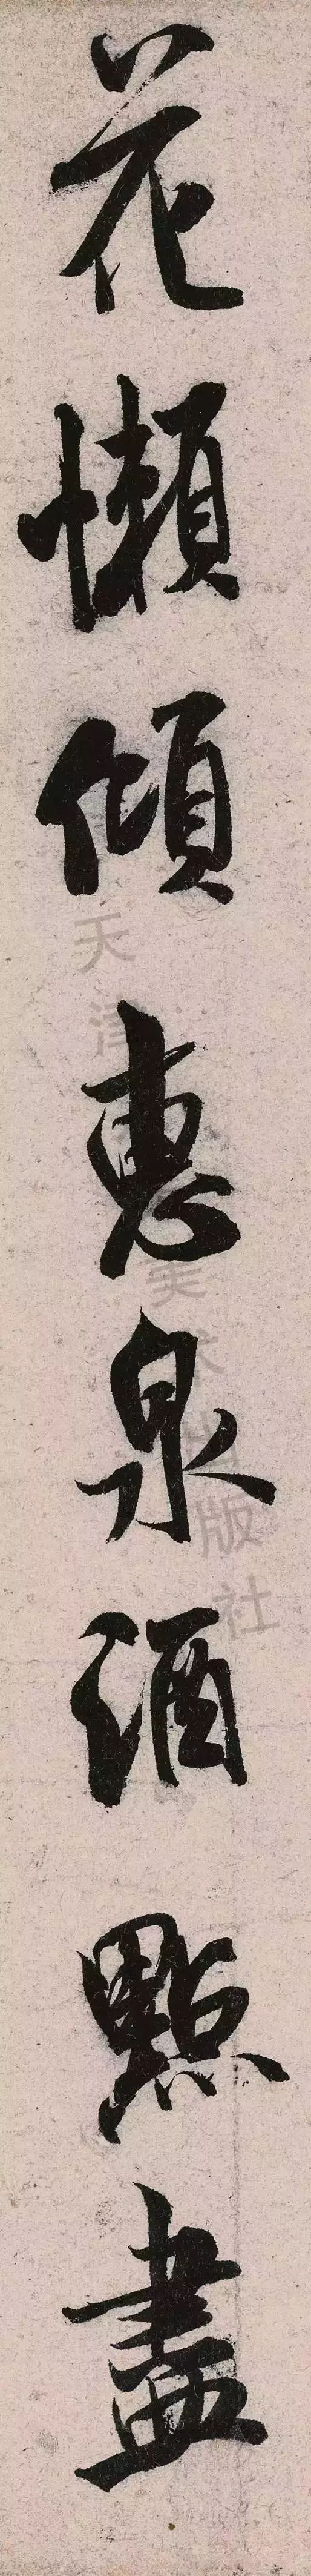 花懶傾惠泉酒點盡
天津美术出版社